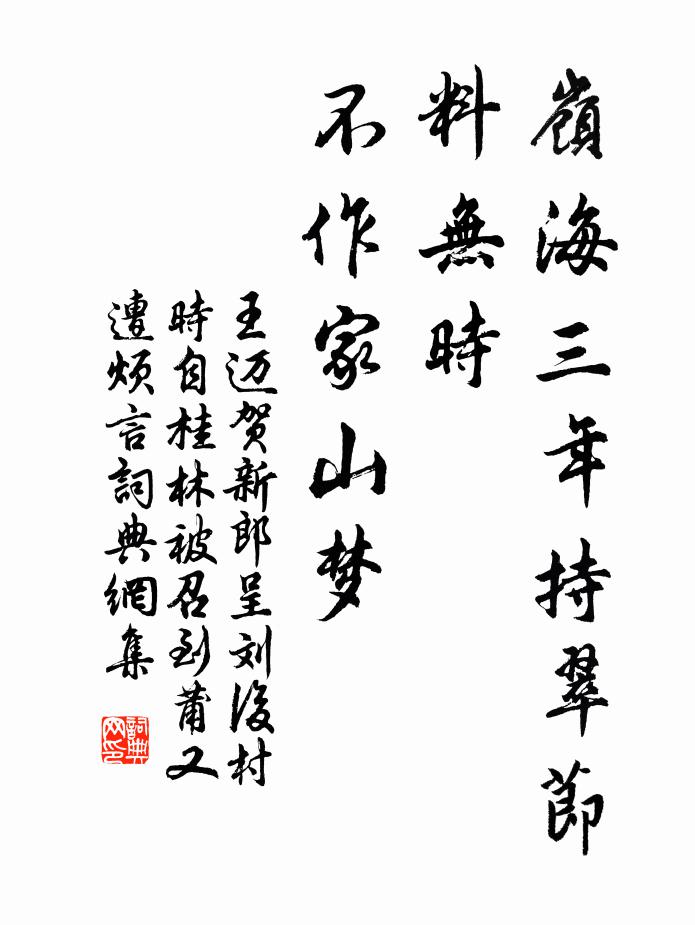 嶺海三年持翠節
料無時
不作家山梦
王迈贺新郎呈刘後村
時自桂林被召到莆又
遭煩言詞典網集
詞典网印